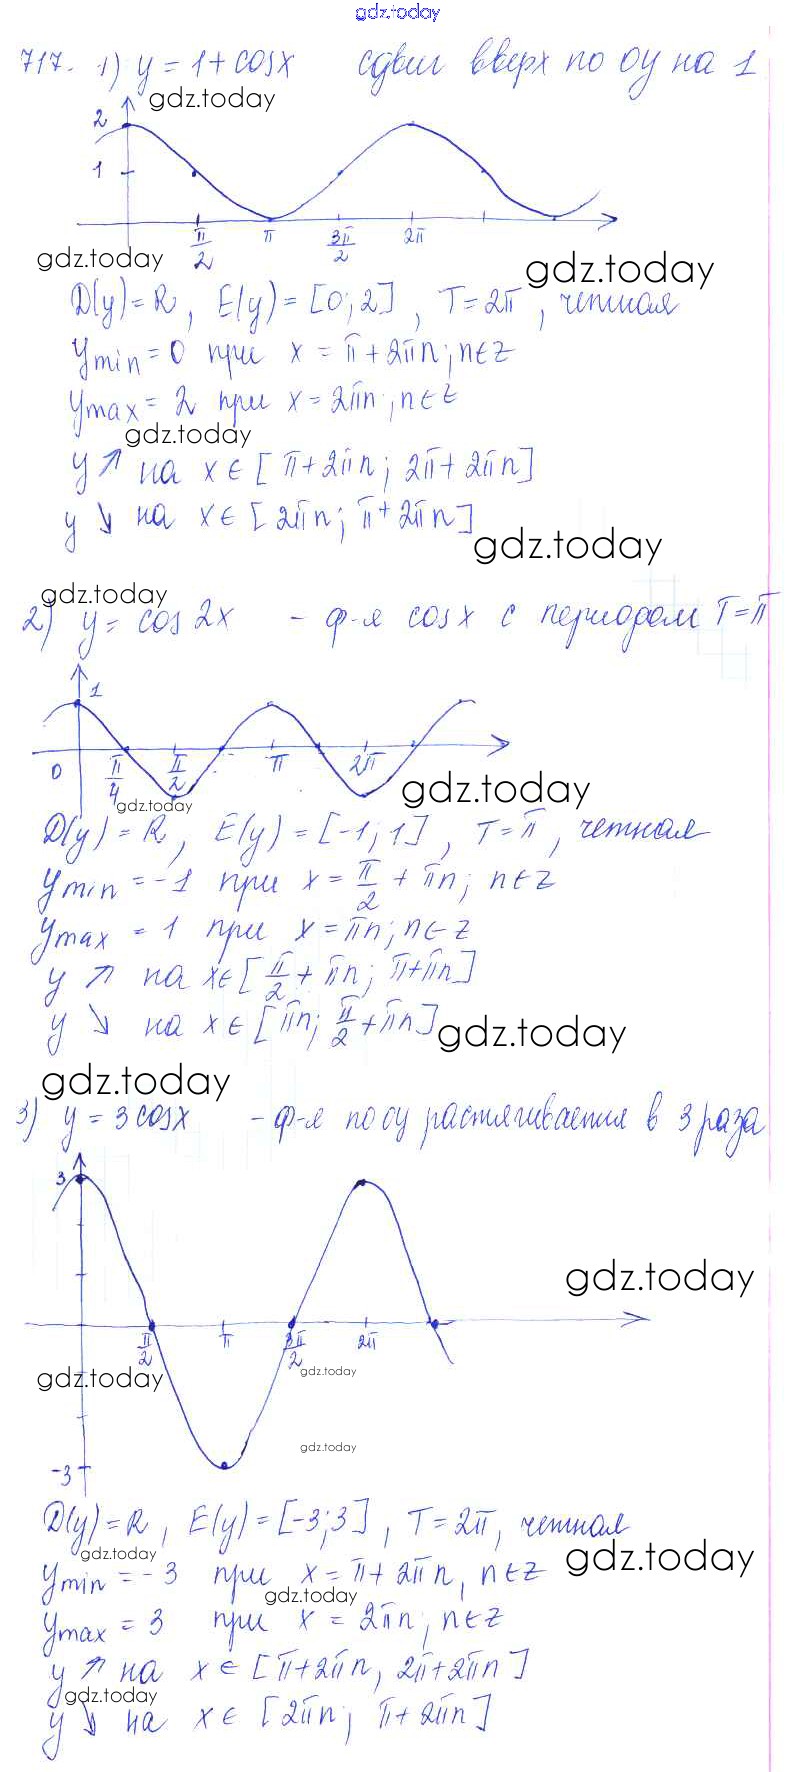 gdz.today
717. 1) y = 1 + cosx сдвиг вверх по Oy на 1
gdz.today
2
1
π/2 π 3π/2 2π
gdz.today
gdz.today
D(y) = R, E(y) = [0; 2], T = 2π, четная
ymin = 0 при x = π + 2πn; n∈Z
ymax = 2 при x = 2πn; n∈Z
gdz.today
y ↗ на x ∈ [π + 2πn; 2π + 2πn]
y ↘ на x ∈ [2πn; π + 2πn]
gdz.today
gdz.today
2) y = cos 2x - ф-я cosx с периодом T = π
1
0 π/4 π/2 π 2π
gdz.today
gdz.today
D(y) = R, E(y) = [-1; 1], T = π, четная
ymin = -1 при x = π/2 + πn; n∈Z
ymax = 1 при x = πn; n∈Z
y ↗ на x∈[π/2 + πn; π+πn]
y ↘ на x ∈ [πn; π/2 + πn]
gdz.today
gdz.today
3) y = 3cosx - ф-я по oy растягивается в 3 раза
3
gdz.today
π/2 π 3π/2 2π
gdz.today
gdz.today
gdz.today
-3
D(y) = R, E(y) = [-3; 3], T = 2π, четная
gdz.today
gdz.today
ymin = -3 при x = π + 2πn, n∈Z
gdz.today
ymax = 3 при x = 2πn; n∈Z
y ↗ на x ∈ [π+2πn, 2π+2πn]
gdz.today
y ↘ на x ∈ [2πn; π + 2πn]